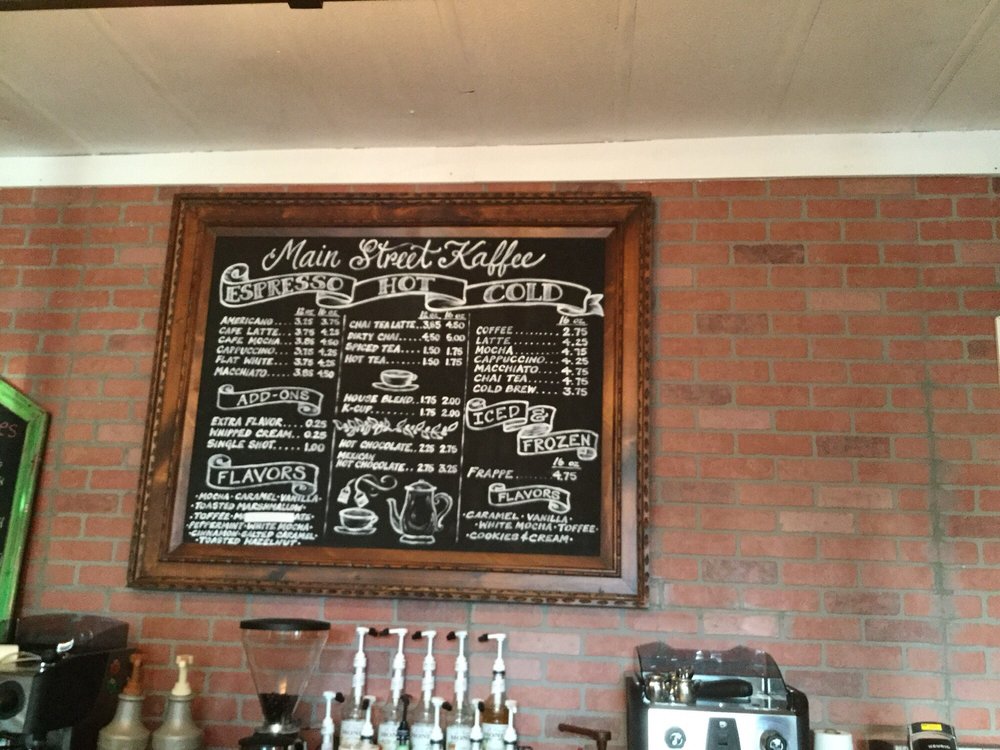 Main Street Kaffee
ESPRESSO HOT COLD
12 oz 16 oz
AMERICANO....3.25 3.75
CAFE LATTE...3.75 4.25
CAFE MOCHA...3.85 4.50
CAPPUCCINO...3.75 4.25
FLAT WHITE...3.75 4.25
MACCHIATO....3.85 4.50
ADD-ONS
EXTRA FLAVOR....0.25
WHIPPED CREAM...0.25
SINGLE SHOT.....1.00
FLAVORS
·MOCHA·CARAMEL·VANILLA·
·TOASTED MARSHMALLOW·
·TOFFEE
·PEPPERMINT·WHITE MOCHA·
·CINNAMON·SALTED CARAMEL·
·TOASTED HAZELNUT·
12 oz 16 oz
CHAI TEA LATTE..3.85 4.50
DIRTY CHAI.....4.50 5.00
SPICED TEA....1.50 1.75
HOT TEA.......1.50 1.75
HOUSE BLEND..1.75 2.00
K-CUP........1.75 2.00
HOT CHOCOLATE..2.25 2.75
MEXICAN
HOT CHOCOLATE..2.75 3.25
16 oz
COFFEE.........2.75
LATTE..........4.25
MOCHA..........4.75
CAPPUCCINO....4.25
MACCHIATO.....4.75
CHAI TEA.......4.75
COLD BREW.....3.75
ICED &
FROZEN
16 oz
FRAPPE.........4.75
FLAVORS
·CARAMEL·VANILLA·
·WHITE MOCHA·TOFFEE·
·COOKIES & CREAM·